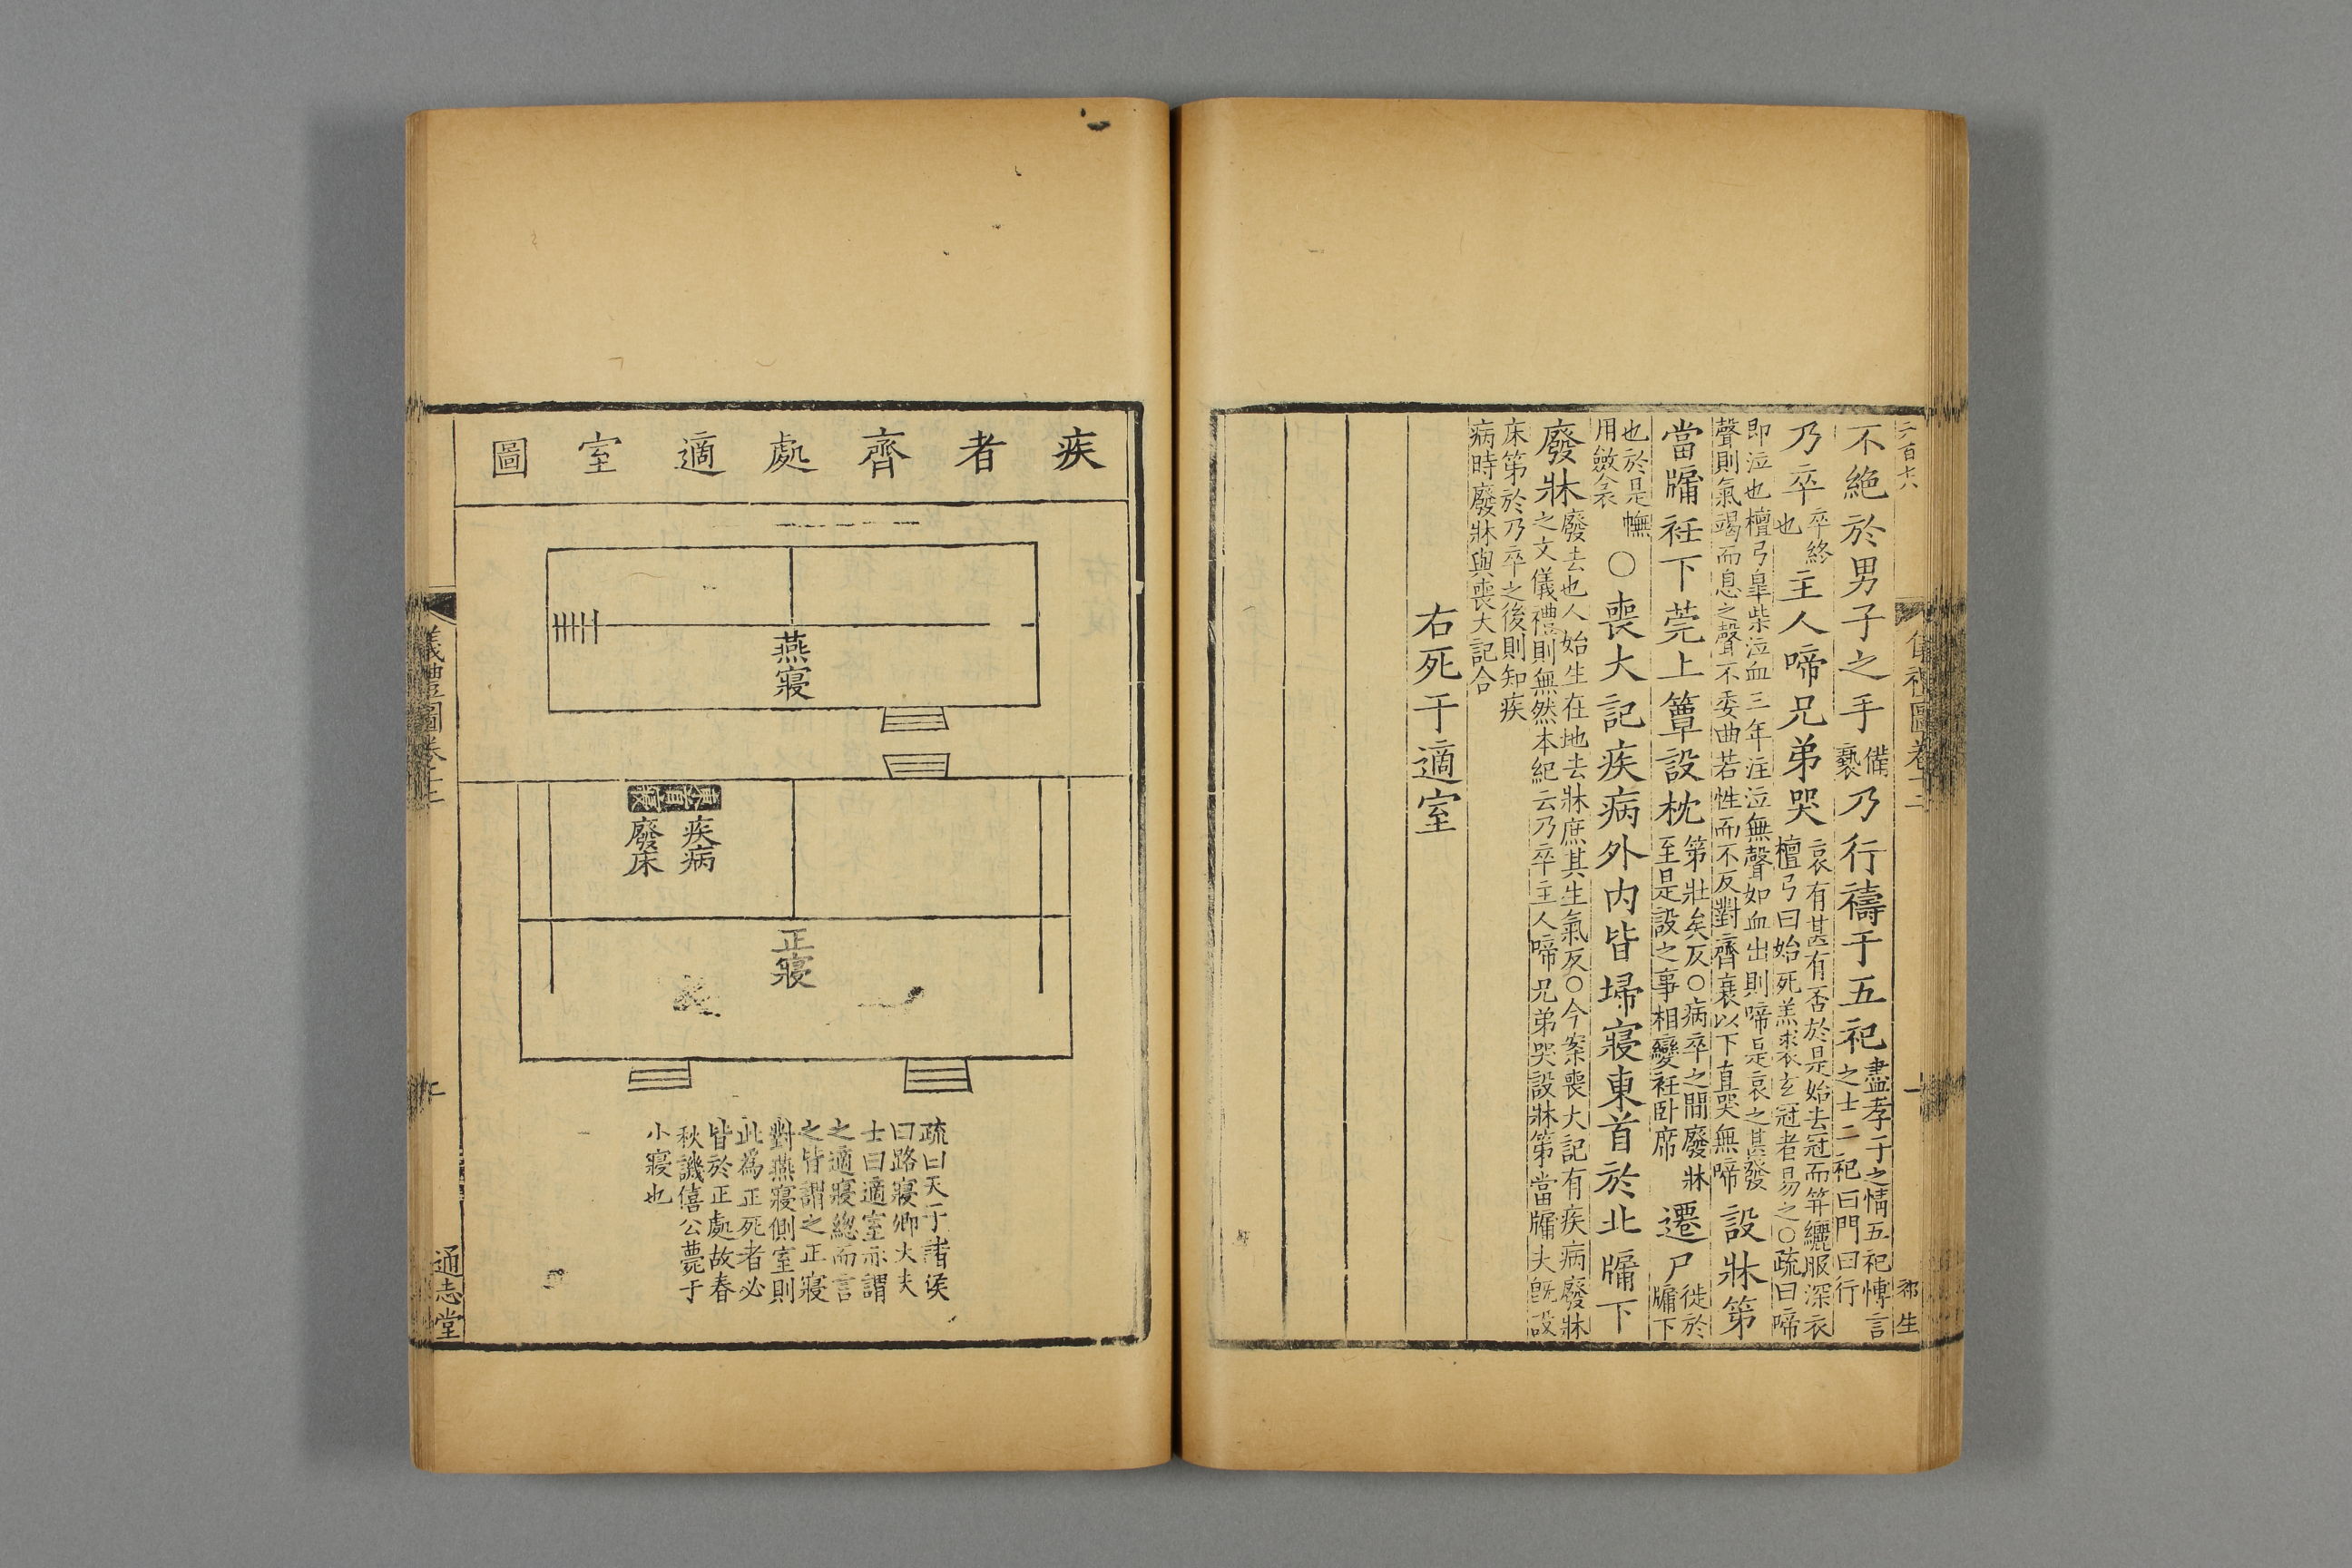 不絕於男子之手
備
褻
乃行禱于五祀
盡孝子之情五祀博言
之士二祀曰門曰行
乃卒
卒終
也
主人啼兄弟哭
哀有甚有否於是始去冠而笄纚服深衣
檀弓曰始死羔裘玄冠者易之○疏曰啼
即泣也檀弓皐柴泣血三年注泣無聲如血出則啼是哀之甚發
聲則氣竭而息之聲不委曲若性而不反對齊衰以下直哭無啼
設牀第
當牖衽下莞上簟設枕
第壯矣反○病卒之間廢牀
至是設之事相變衽臥席
遷尸
徙於
牖下
也於是幠
用斂衾
○喪大記疾病外內皆埽寢東首於北牖下
廢牀
廢去也人始生在地去牀庶其生氣反○今案喪大記有疾病廢牀
之文儀禮則無然本紀云乃卒主人啼兄弟哭設牀第當牖夫旣設
床第於乃卒之後則知疾
病時廢牀與喪大記合
右死于適室
儀禮圖卷十二
疾者齊處適室圖
燕寢
東首寢
疾病
廢床
正寢
疏曰天子諸侯
曰路寢卿大夫
士曰適室亦謂
之適寢總而言
之皆謂之正寢
對燕寢側室則
此爲正死者必
皆於正處故春
秋譏僖公薨于
小寢也
儀禮圖卷十二
通志堂